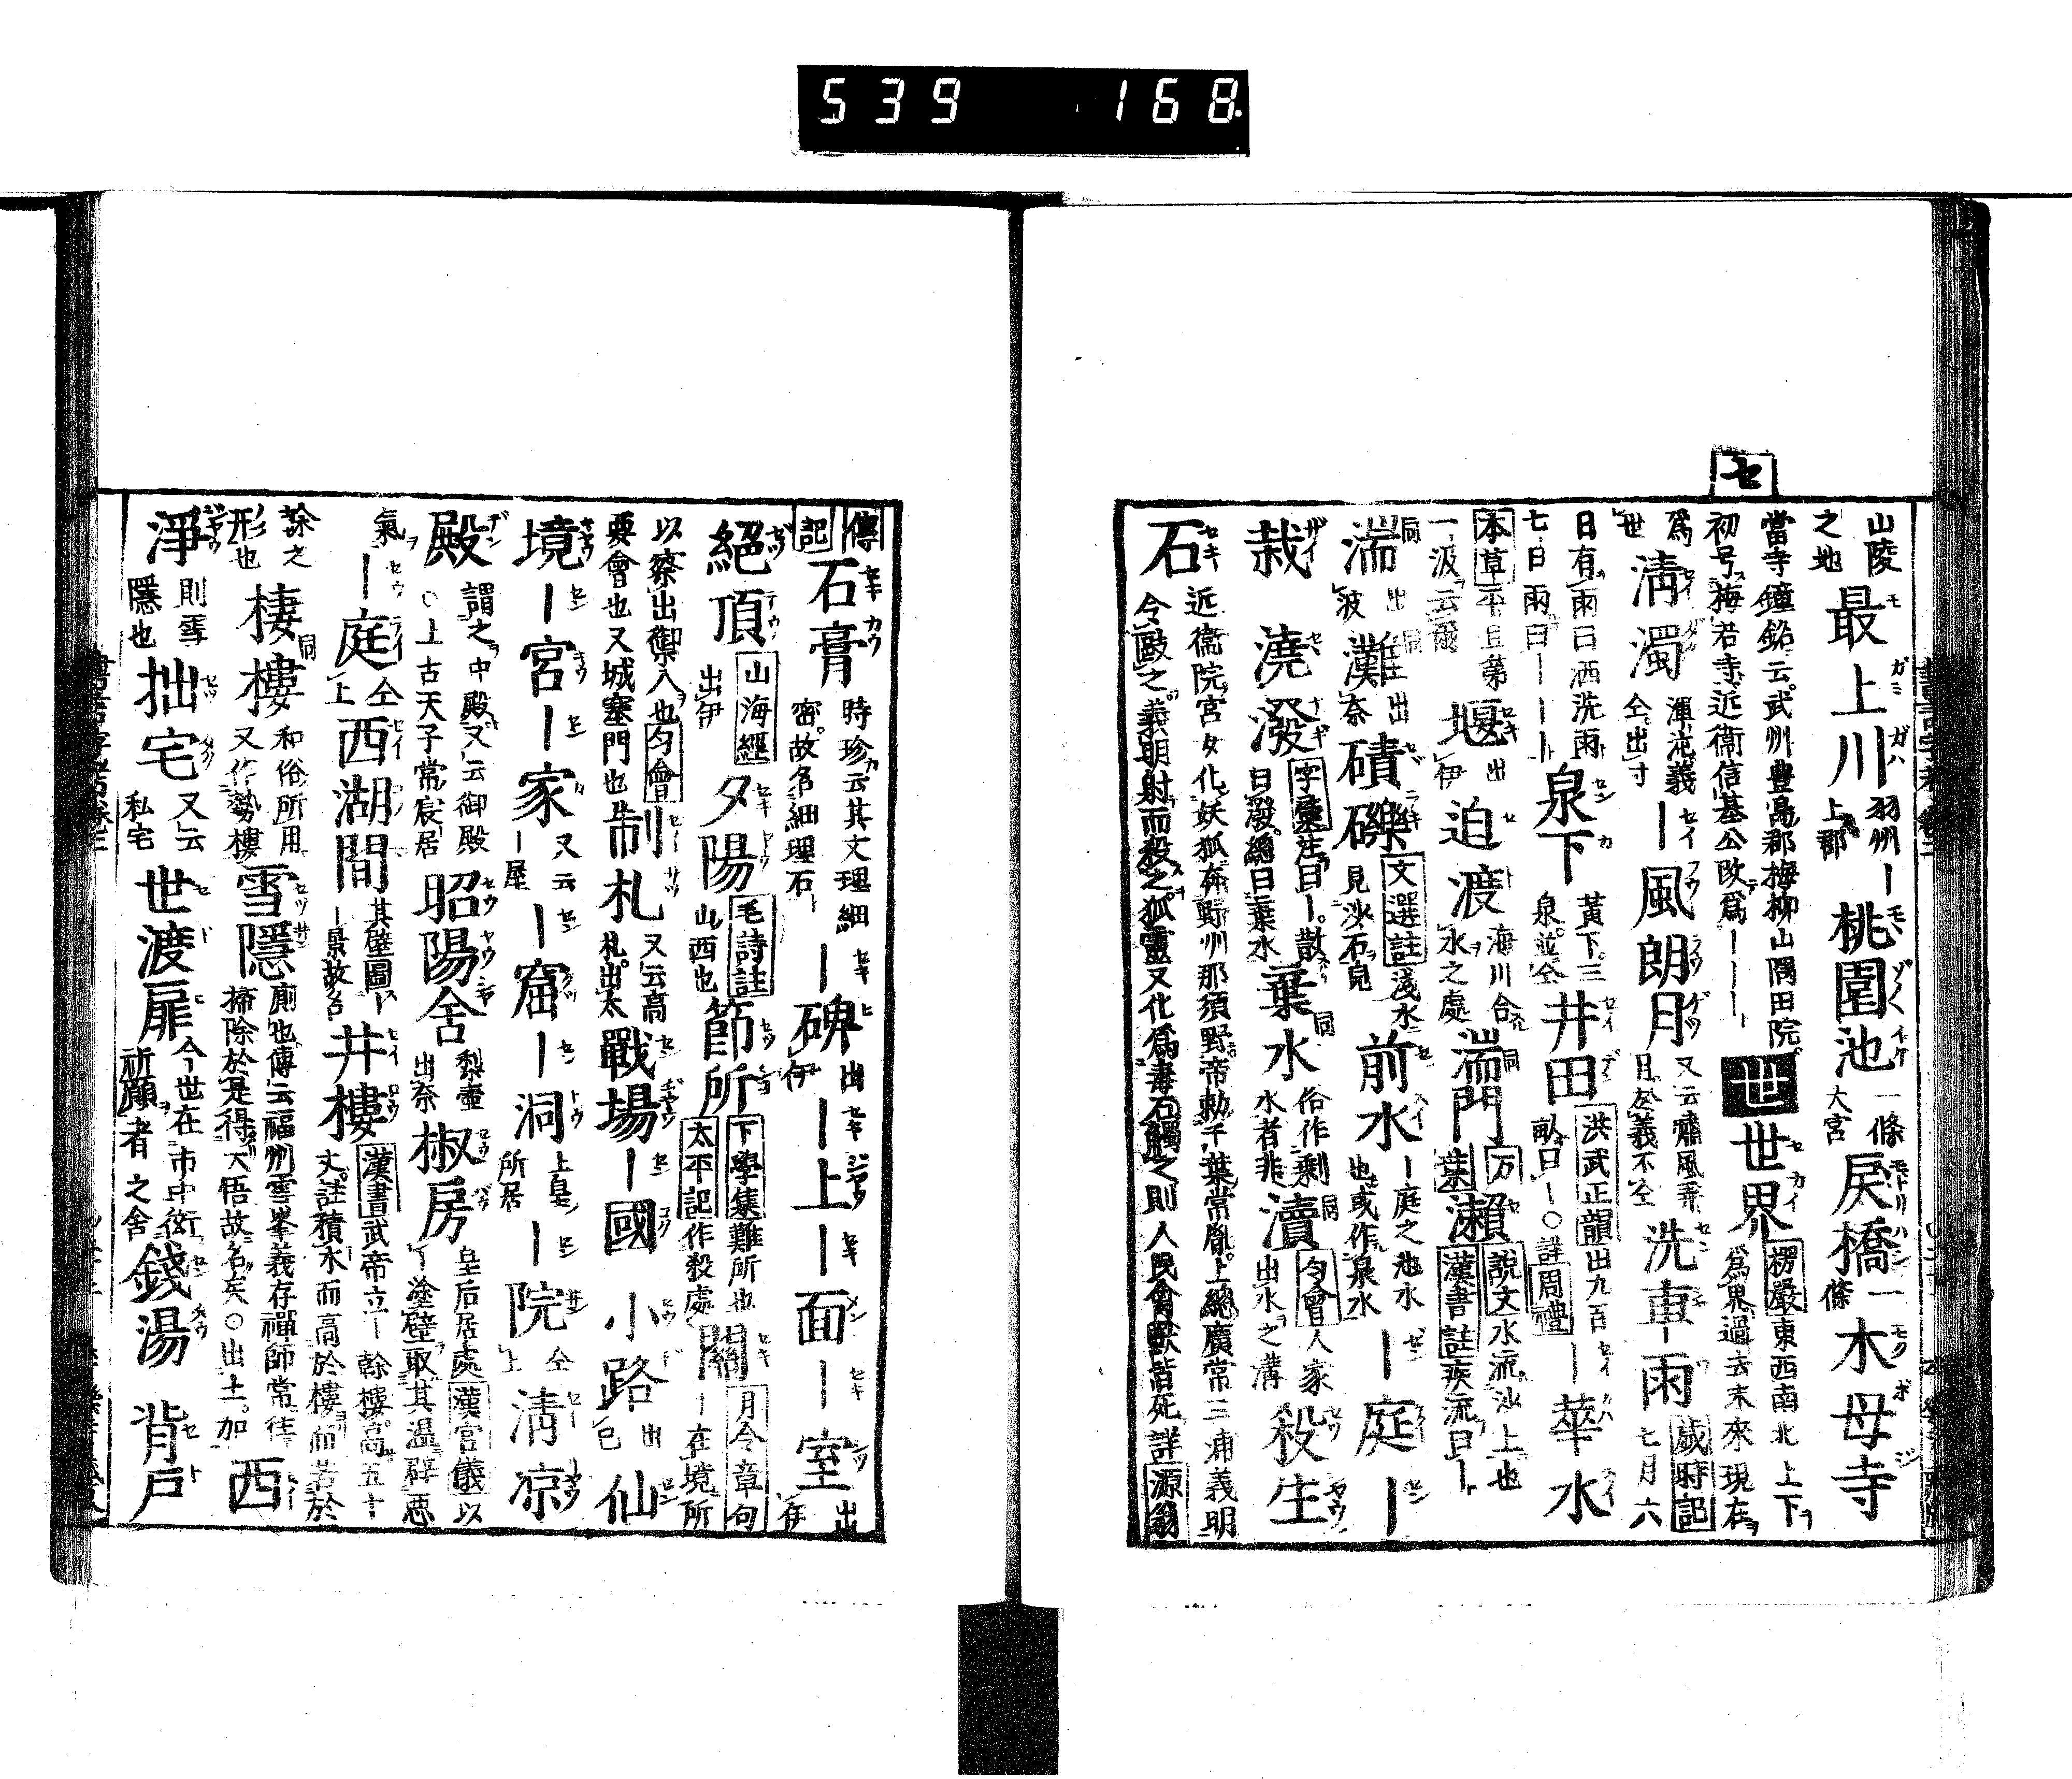 539 168
セ
山陵之地 最上川 羽州ー上郡 桃園池 一條大宮 戻橋 一條 木母寺
當寺鐘銘云武州豊嶋郡梅柳山隅田院初号梅若寺近衞信基公改爲ーーー 世 世界 楞嚴東西南北上下爲界過去未來現在
爲世 淸濁 渾沌義仝出寸 ー風朗月 又云 洗車ー雨 歳時記七月六
日有雨曰洒洗雨七日雨曰ーーー 泉下 黃下三泉並仝 井田 洪武正韻出九百畝曰ー○詳周禮 ー華水
本草平旦第一汲云爾 堰 出伊 迫渡 海川合水之處 湍 門 万葉 瀨 說文水流沙上也漢書註疾流曰ー
湍 出波 灘 出奈 磧礫 文選註淺水見沙石皃 前水 ー庭之池水也或作泉水 ー庭ー
栽 澆潑 字彙注曰ー散曰潑總曰棄水 棄水 俗作剩水者非 瀆 匀會人家出水之溝 殺生
石 近衞院宮女化妖狐奔野州那須野帝勅千葉常胤上總廣常三浦義明令敺之義明射而殺之狐靈又化爲毒石觸之則人民禽獸皆死詳源翁
傳記 石膏 時珍云其文理細密故名細理石 ー碑 出伊 ー上ー面ー室 出伊
絕頂 山海經出伊 夕陽 毛詩註山西也 節所 下學集難所也太平記作殺處 關 月令章句ー在境所
以察出禦入也匀會要會也又城塞門也 制札 又云高札出太 戰場ー國 小路 出己 仙
境ー宮ー家 又云ー屋 ー窟ー洞 上皇所居 ー院 仝上 淸凉
殿 謂之中殿又云御殿○上古天子常宸居 昭陽舍 梨壷出奈 椒房 皇后居處漢宮儀以ー塗壁取其溫辟惡
氣 ー庭 仝上 西湖間 其壁圖ー景故名 井樓 漢書武帝立ー餘樓高五十丈註積木而高於樓而苦於
之形也 棲樓 和俗所用又作勢樓 雪隱 廁也傳云福州雪峯義存禪師常徃掃除於是得大悟故名矣○出土加 西
淨 則雪隱也 拙宅 又云私宅 世渡扉 今世在市中街祈願者之舍 錢湯 背戸